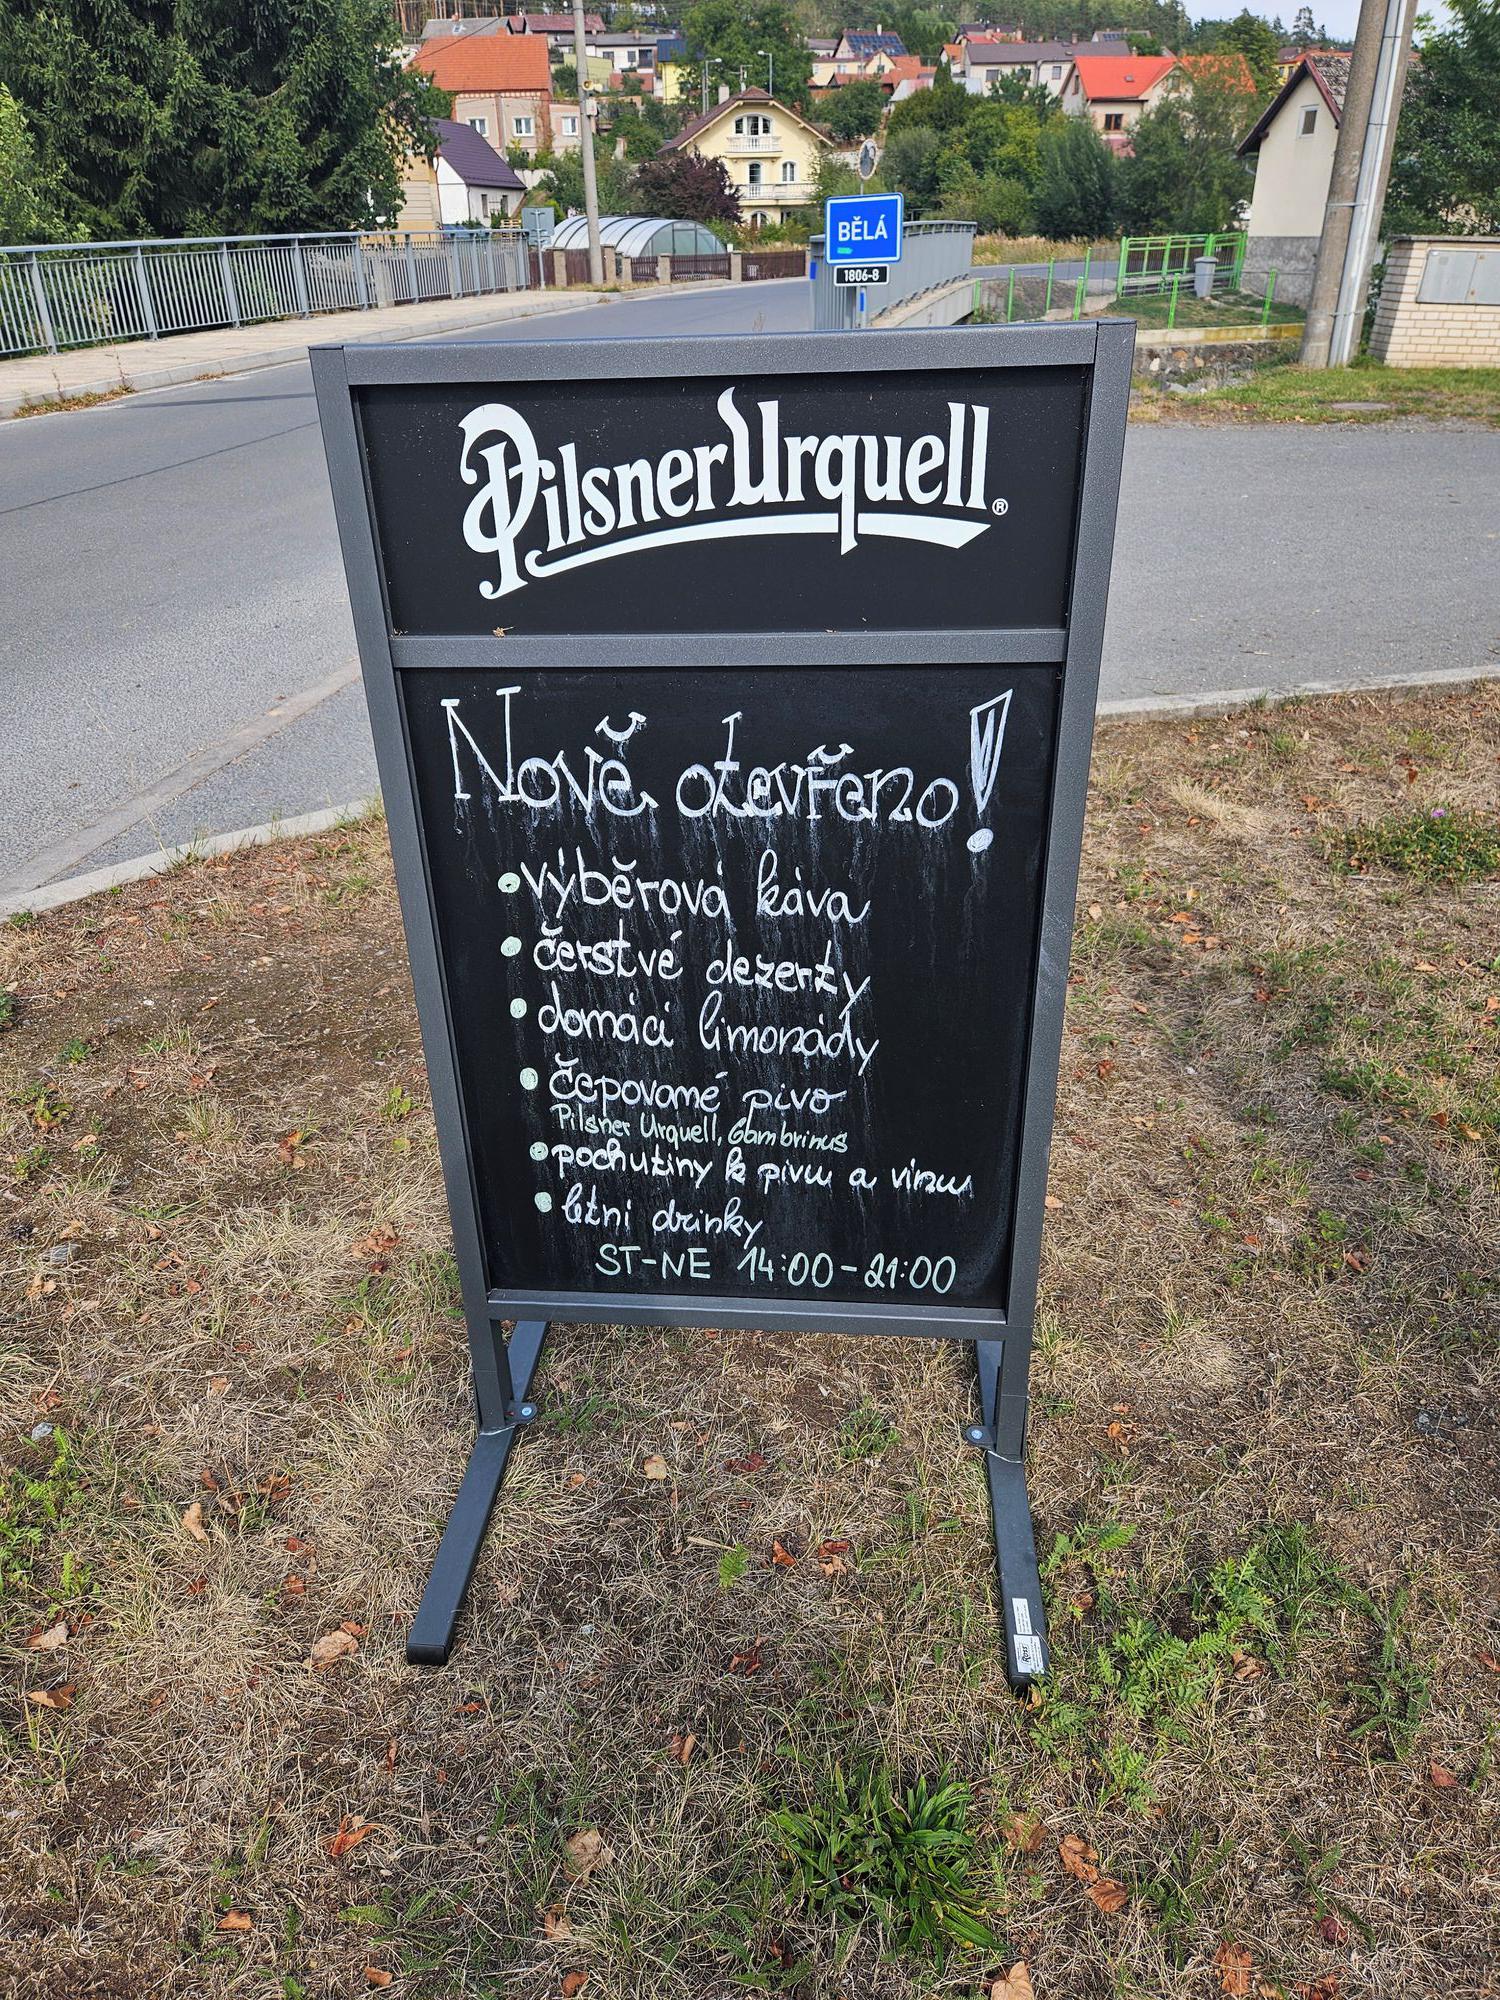 BĚLÁ
1806-8
Pilsner Urquell®
Nově otevřeno!
• výběrová káva
• čerstvé dezerty
• domácí limonády
• čepované pivo
Pilsner Urquell, Gambrinus
• pochutiny k pivu a vínu
• letní drinky
ST-NE 14:00-21:00